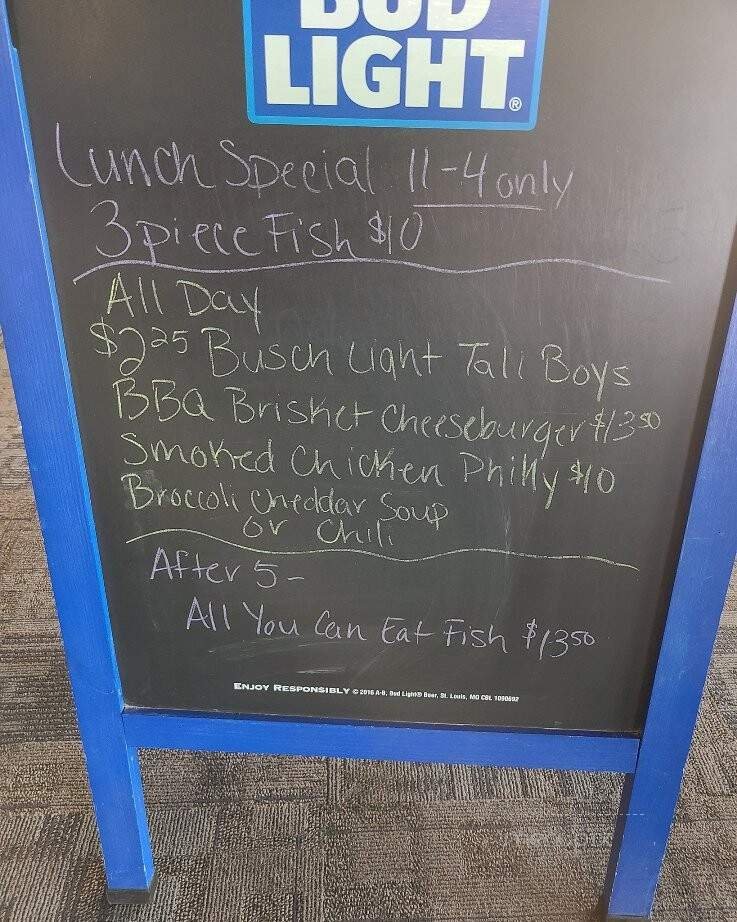 BUD
LIGHT®
Lunch Special 11-4 only
3 piece Fish $10
All Day
$2.25 Busch Light Tall Boys
BBQ Brisket Cheeseburger $13.50
Smoked Chicken Philly $10
Broccoli Cheddar Soup
or Chili
After 5-
All You Can Eat Fish $13.50
ENJOY RESPONSIBLY © 2016 A-B, Bud Light® Beer, St. Louis, MO CBL 1090692